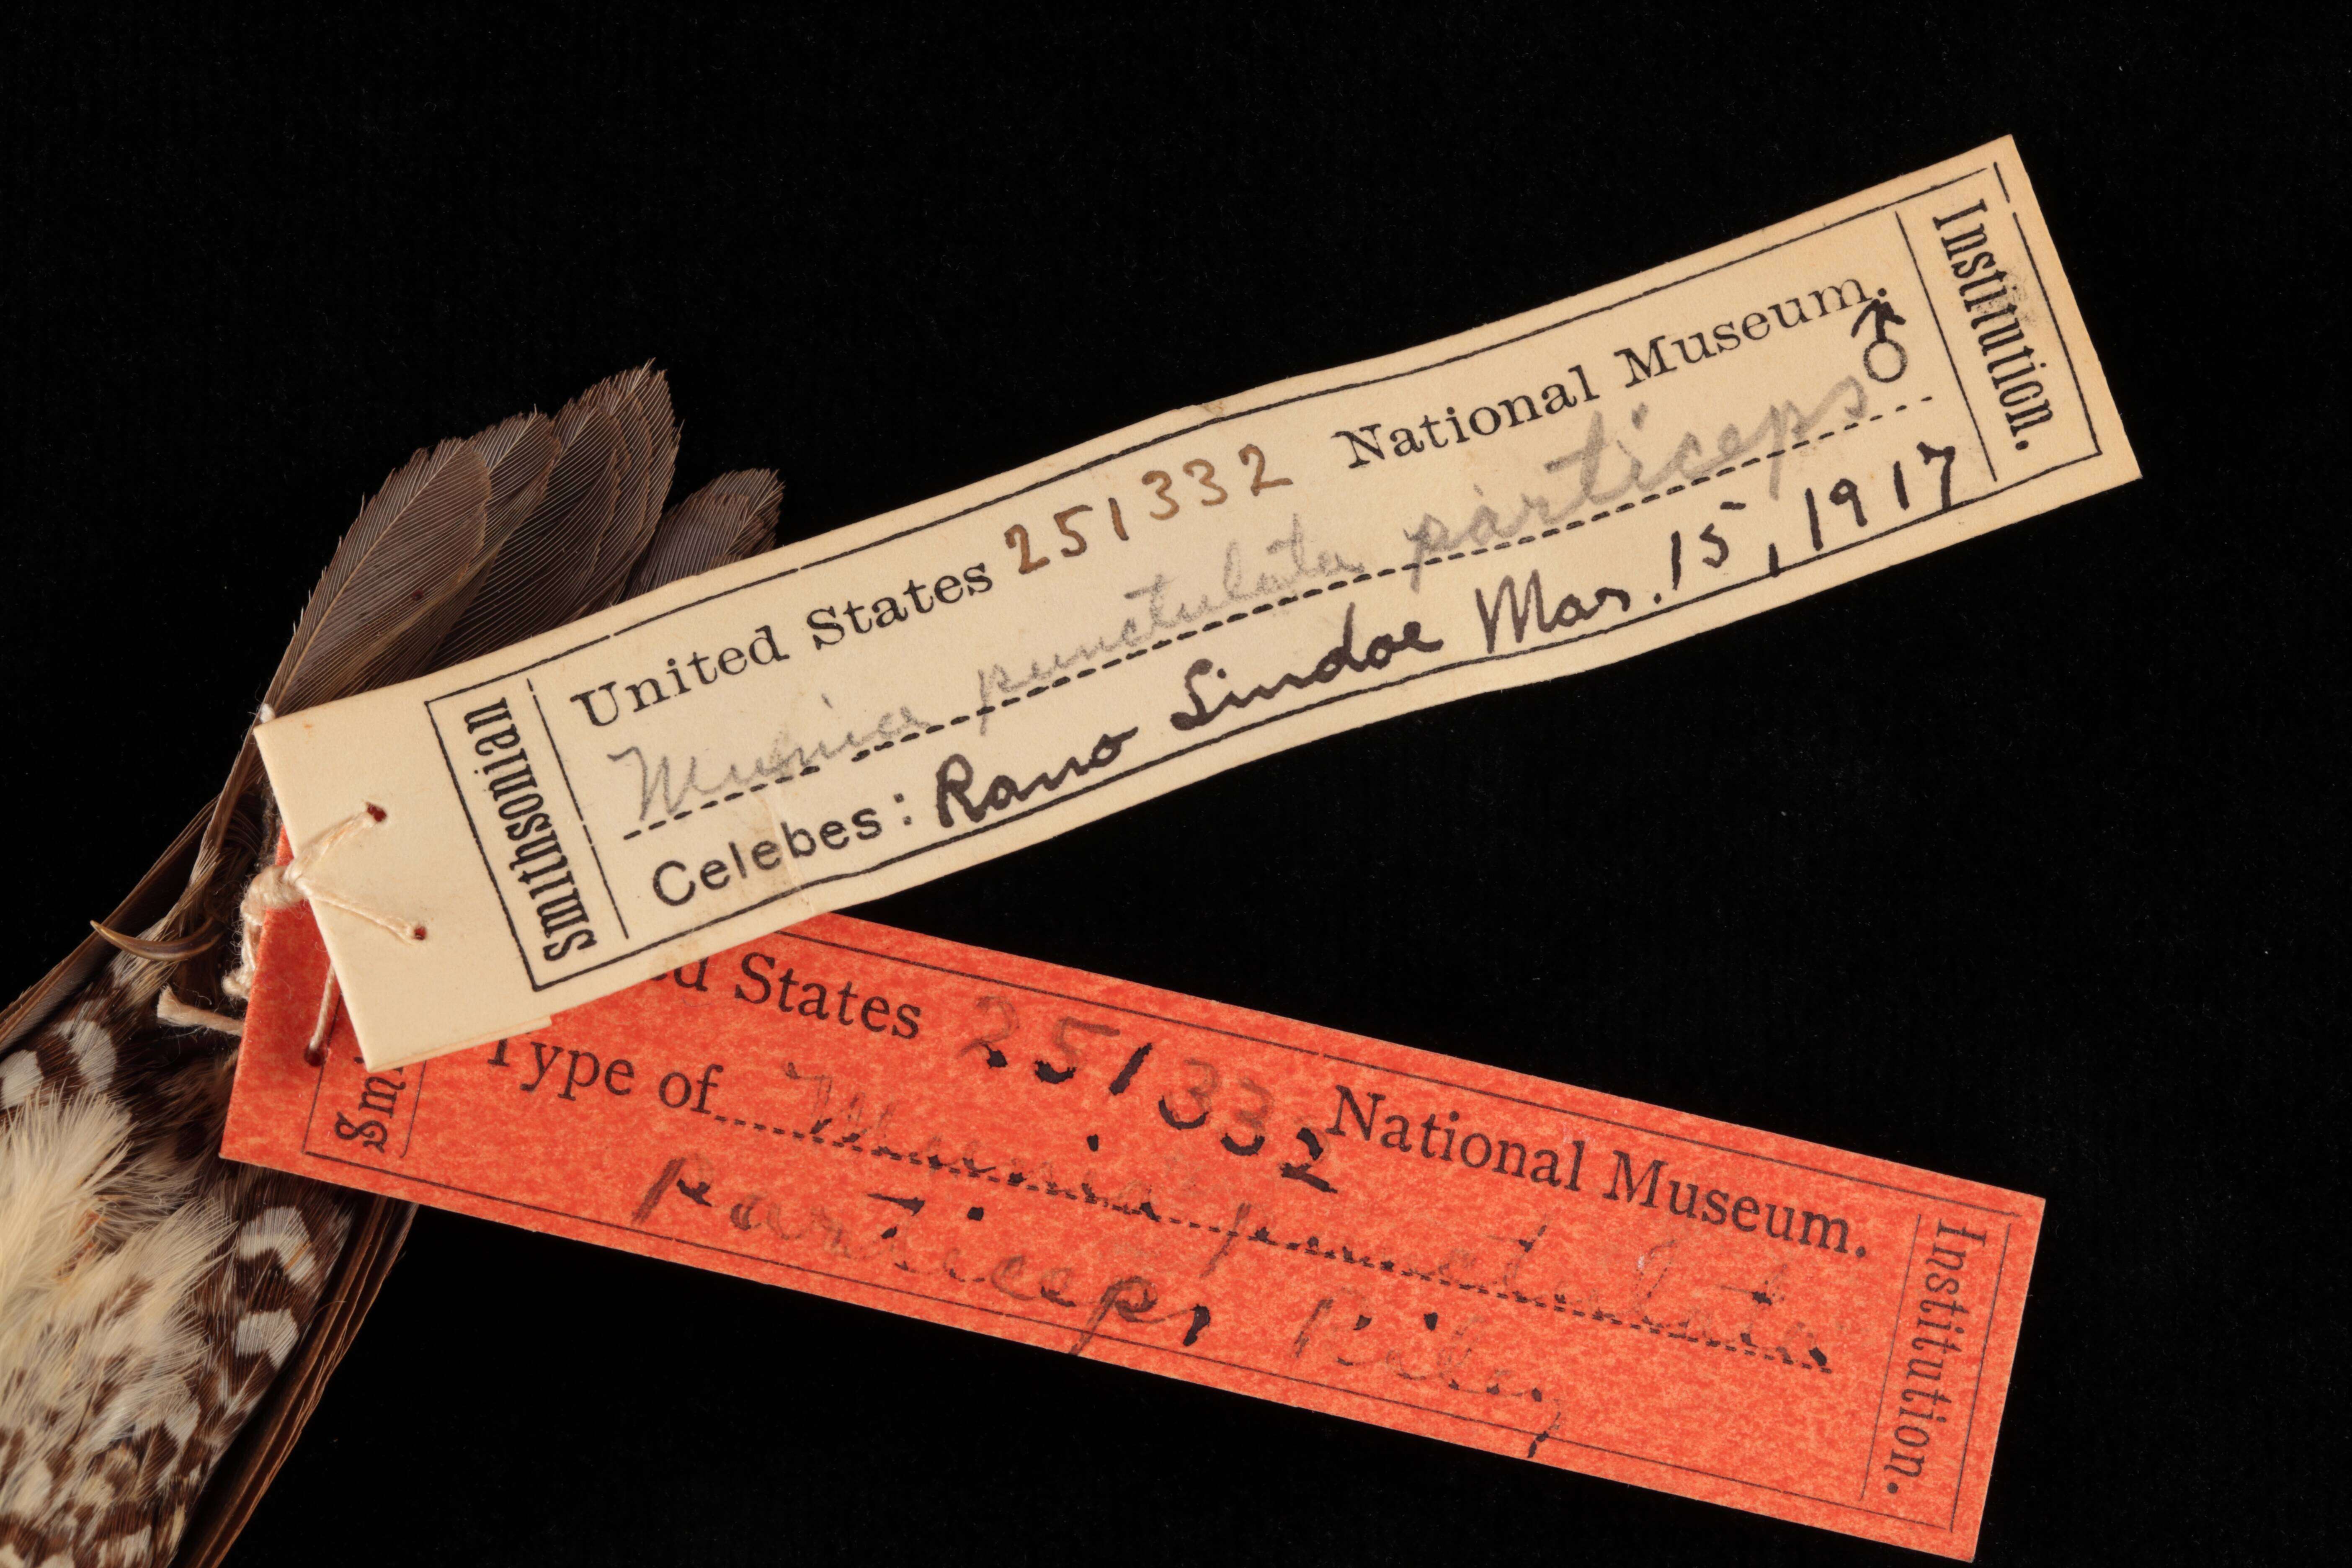 Smithsonian
United States 251332 National Museum.
Munia punctulata particeps ♂
Celebes: Rano Lindoe Mar. 15, 1917
Institution.
Sm
ed States 251332 National Museum.
Type of Munia punctulata
particeps Riley
Institution.